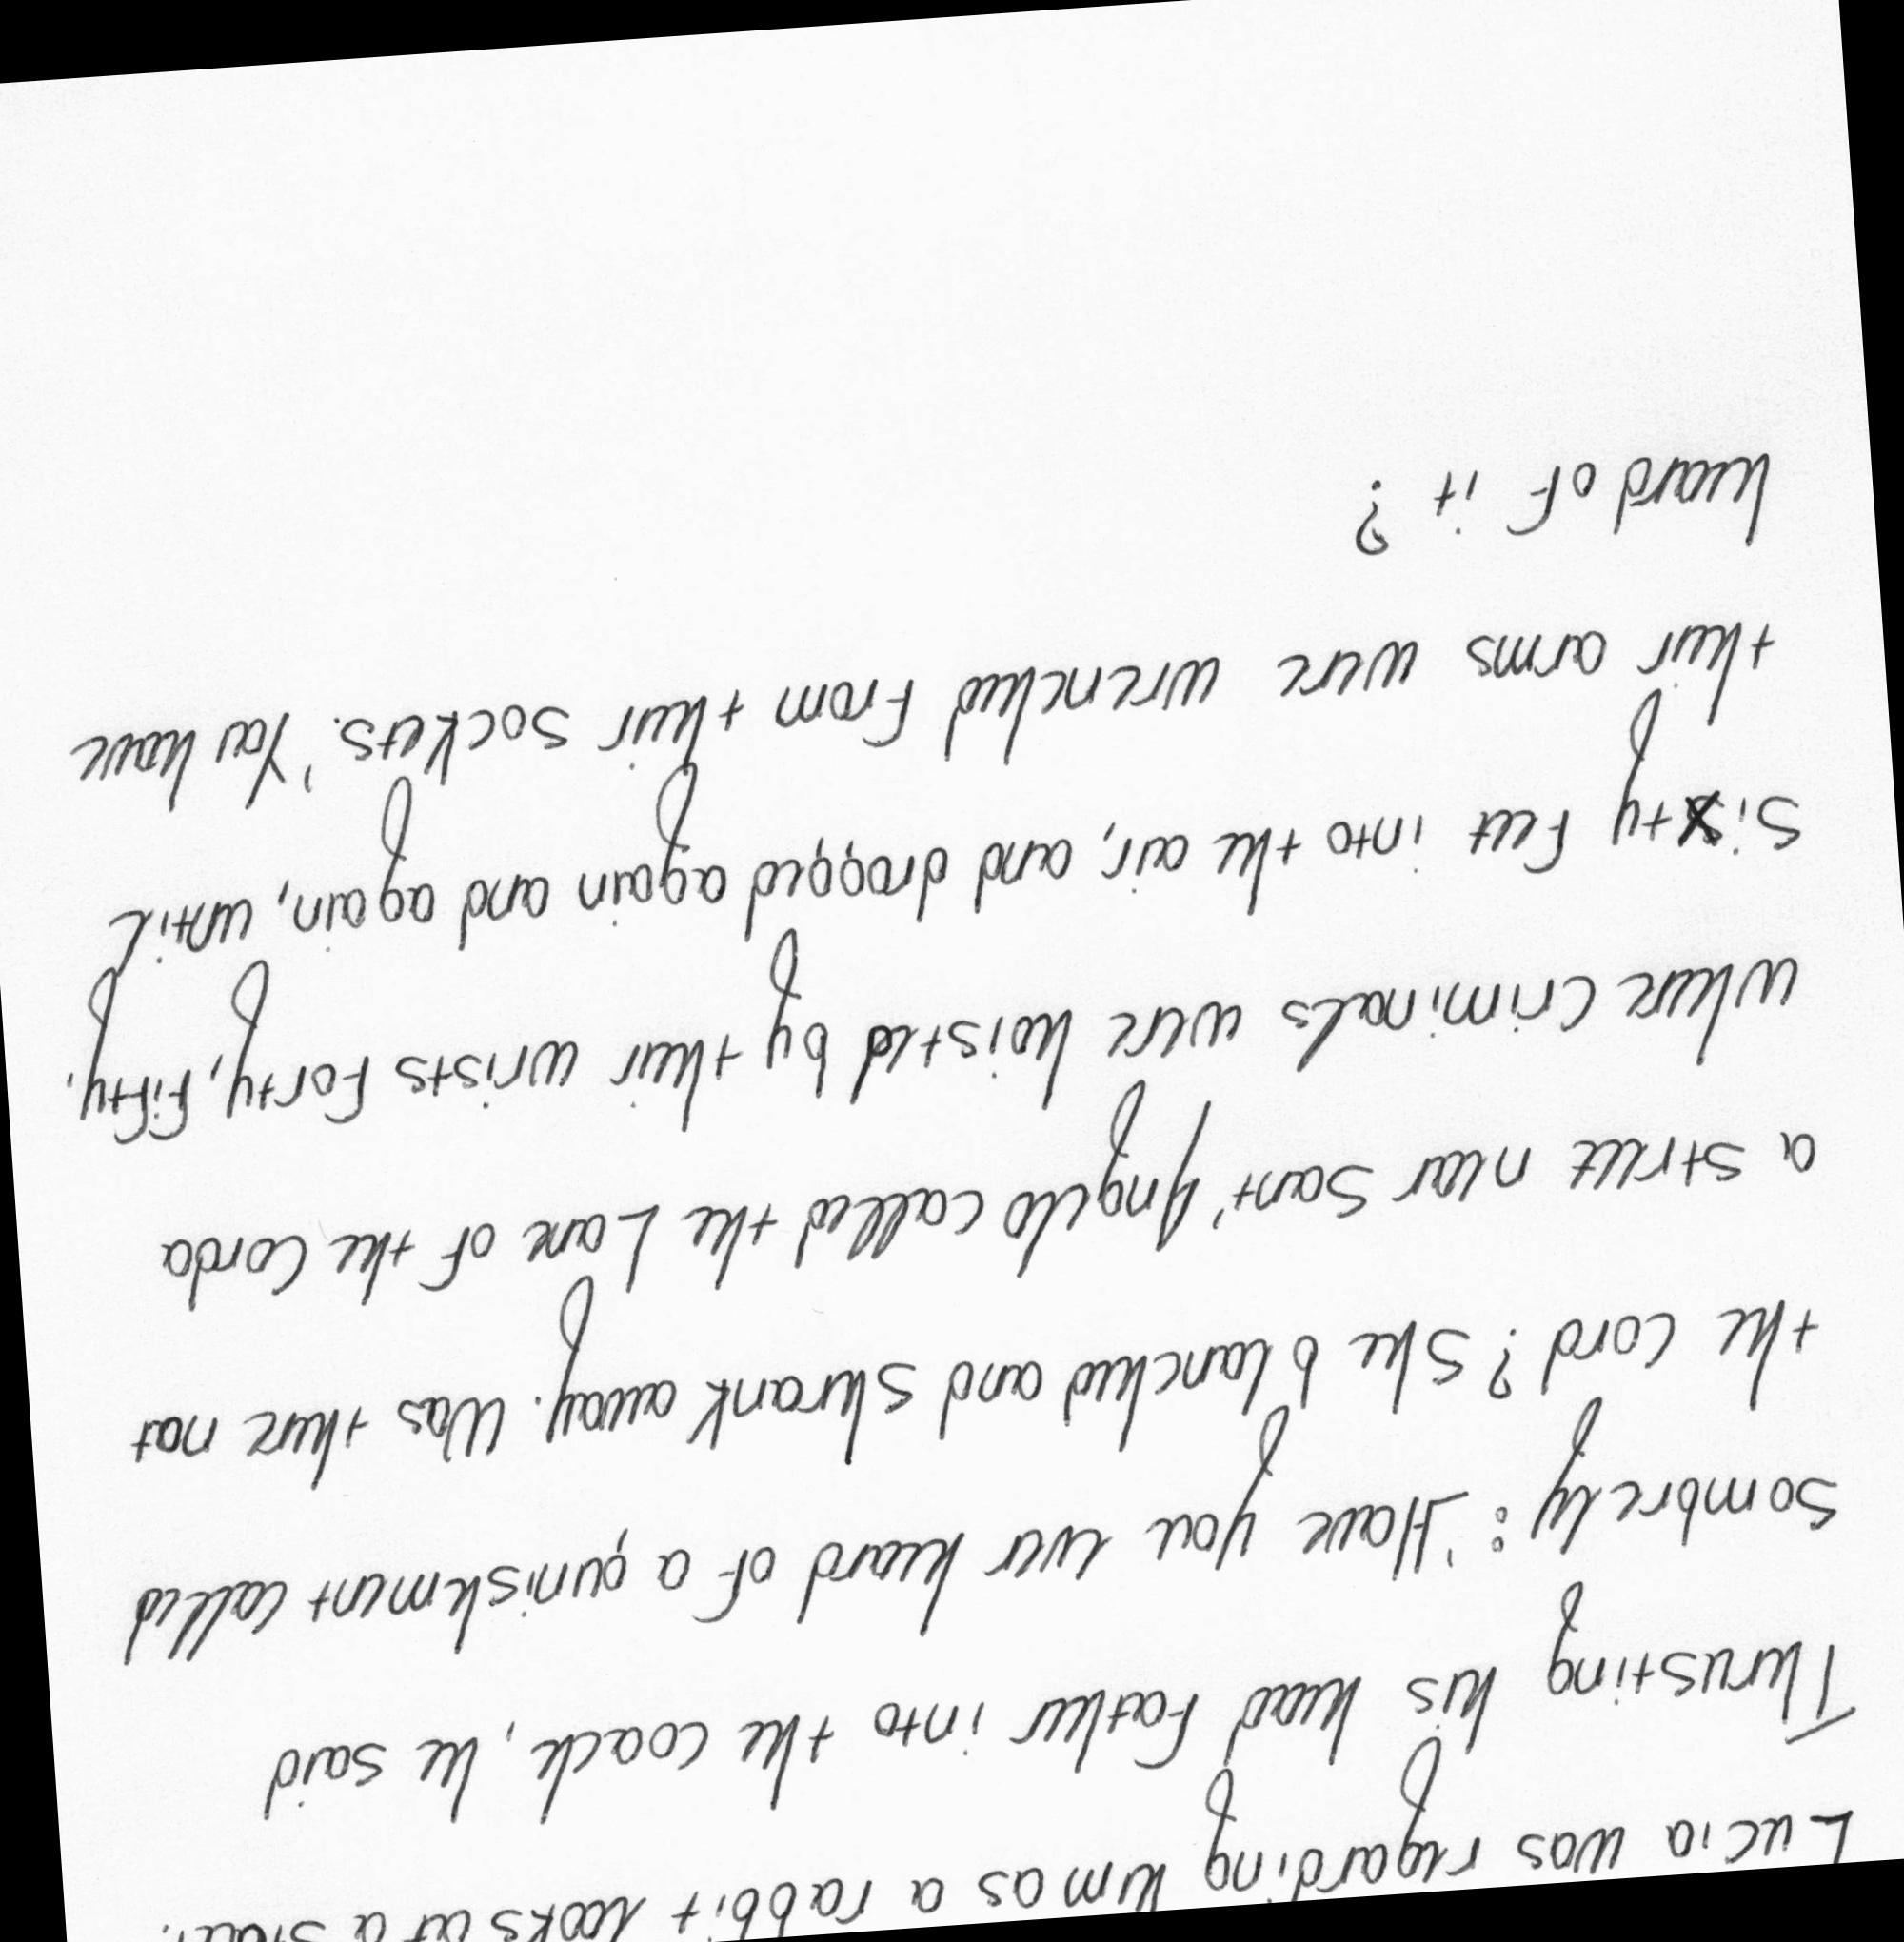 Lucia was regarding him as a rabbit looks at a stoat.
Thrusting his head farther into the coach, he said
sombrely: 'Have you ever heard of a punishment called
the cord? She blanched and shrank away. Was there not
a street near Sant' Angelo called the Lane of the Corda
where criminals were hoisted by their wrists forty, fifty,
sixty feet into the air, and dropped again and again, until
their arms were wrenched from their sockets. 'You have
heard of it?